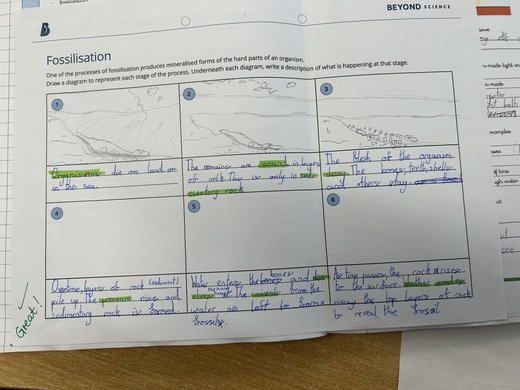 B
BEYOND SCIENCE
Fossilisation
One of the processes of fossilisation produces mineralised forms of the hard parts of an organism.
Draw a diagram to represent each stage of the process. Underneath each diagram, write a description of what is happening at that stage.
1
2
3
Organisms die on land or
in the sea.
The remains are covered in layers
of rock. They is only in sedi-
mentary rock
The flesh of the organism
decay. The bones, teeth, shells
and others stay
4
5
6
Overtime, layers of rock (sediment)
pile up, the pressure rises and
sedimentary rock is formed.
Water enters the bones and
the minerals from the
water are left to form
fossils.
As time passes, the rock rises
to the surface.
away the top layers of rock
to reveal the fossil.
Great!